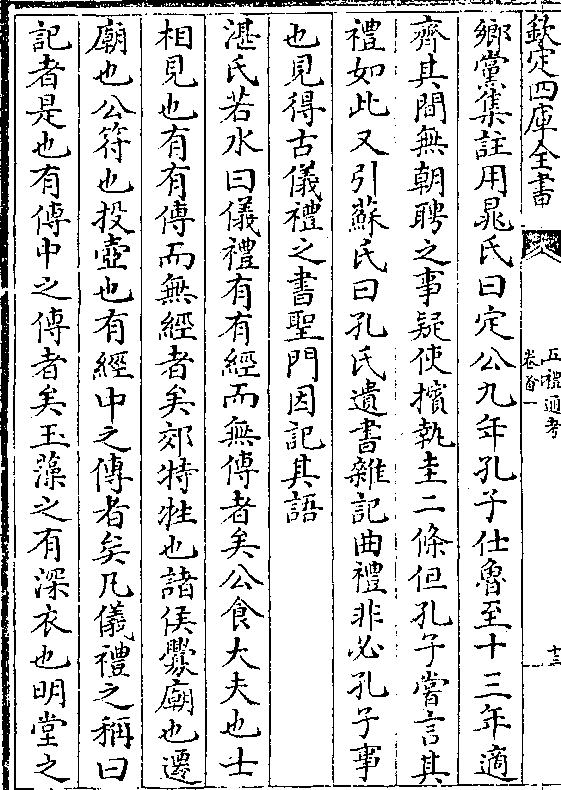 欽定四庫全書
五禮通考
卷首一
十三
鄉黨集註用晁氏曰定公九年孔子仕魯至十三年適
齊其間無朝聘之事疑使擯執圭二條但孔子嘗言其
禮如此又引蘇氏曰孔氏遺書雜記曲禮非必孔子事
也見得古儀禮之書聖門因記其語
湛氏若水曰儀禮有有經而無傳者矣公食大夫也士
相見也有有傳而無經者矣郊特牲也諸侯釁廟也遷
廟也公符也投壺也有經中之傳者矣凡儀禮之稱曰
記者是也有傳中之傳者矣玉藻之有深衣也明堂之